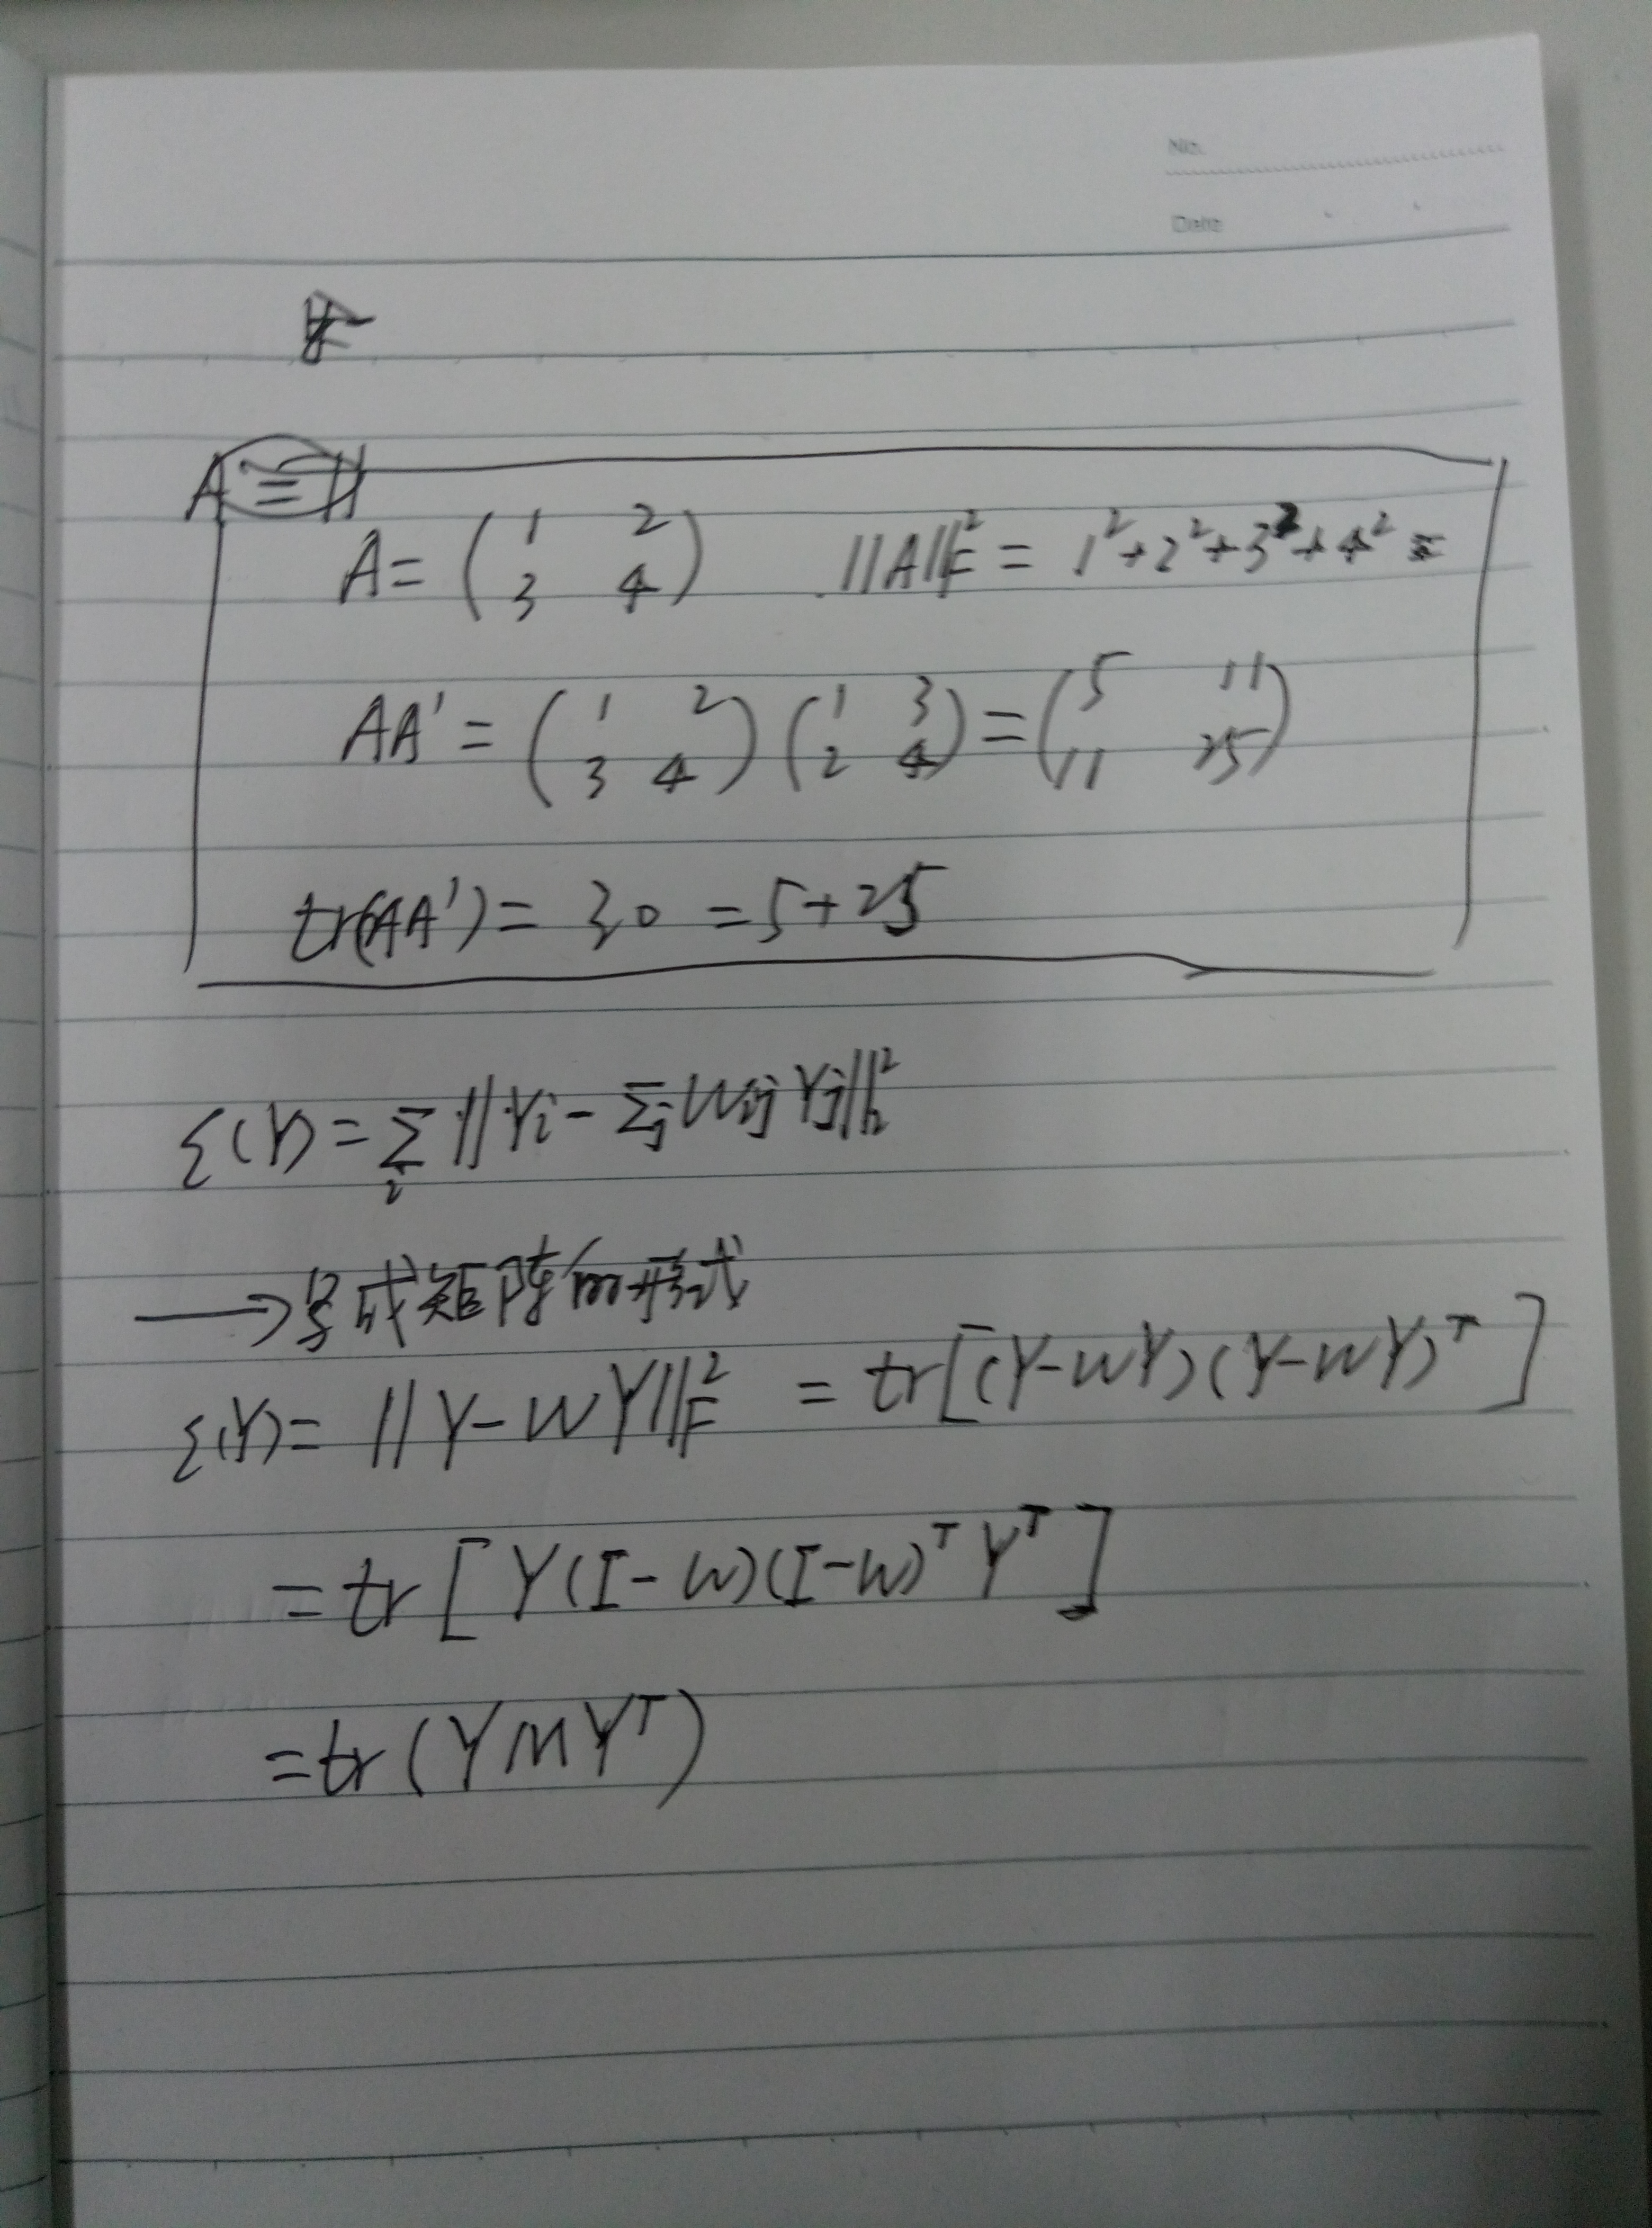 No.
Date
A =
A = ( 1 2 ; 3 4 ) ||A||_F^2 = 1^2+2^2+3^2+4^2 =
AA' = ( 1 2 ; 3 4 ) ( 1 3 ; 2 4 ) = ( 5 11 ; 11 25 )
tr(AA') = 30 = 5+25
ε(Y) = Σ_i ||Yi - Σ_j Wij Yj||_2^2
→写成矩阵的形式
ε(Y) = ||Y-WY||_F^2 = tr[(Y-WY)(Y-WY)^T]
= tr[Y(I-W)(I-W)^T Y^T]
= tr(YMY^T)